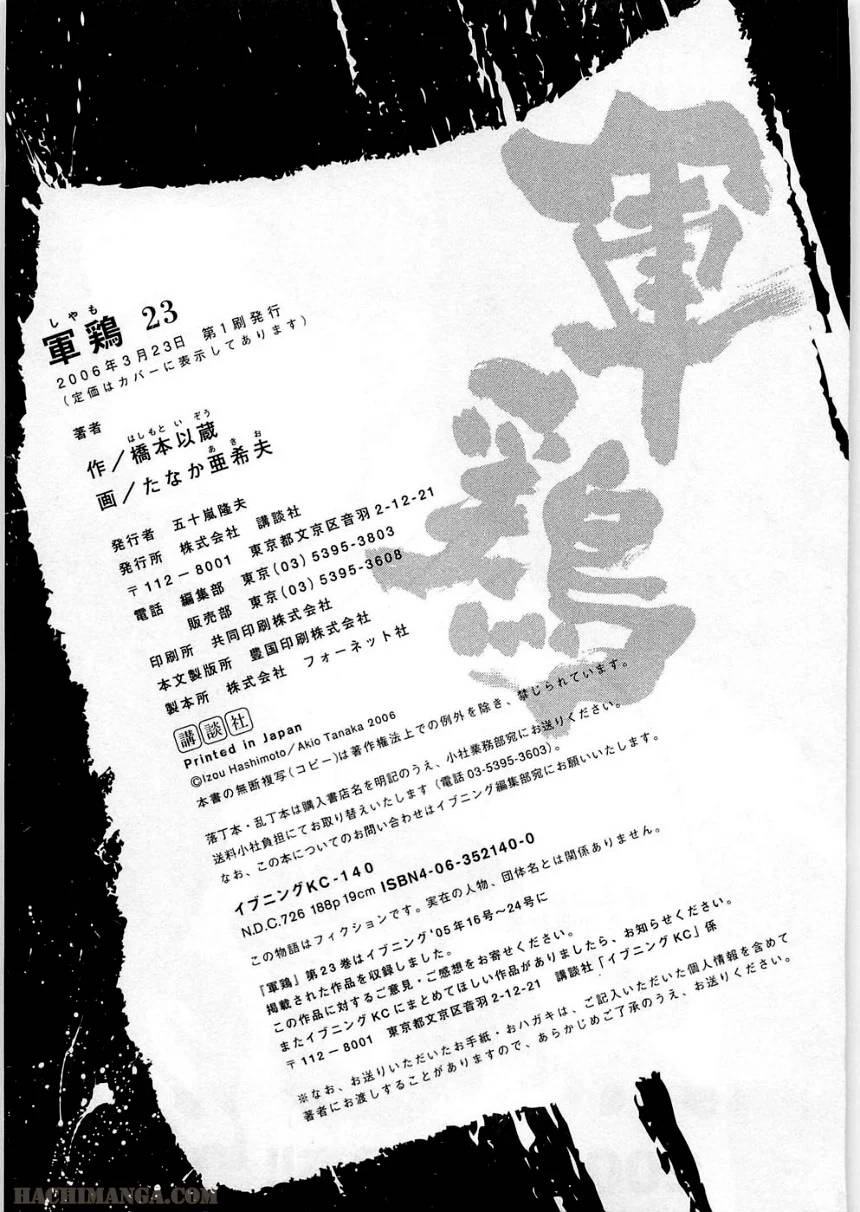 軍鶏
しゃも
軍鶏 23
2006年3月23日 第1刷発行
(定価はカバーに表示してあります)
著者
はしもと い ぞう
作/橋本以蔵
あ き お
画/たなか亜希夫
発行者 五十嵐隆夫
発行所 株式会社 講談社
〒112-8001 東京都文京区音羽2-12-21
電話 編集部 東京(03)5395-3803
販売部 東京(03)5395-3608
印刷所 共同印刷株式会社
本文製版所 豊国印刷株式会社
製本所 株式会社 フォーネット社
講談社
Printed in Japan
©Izou Hashimoto/Akio Tanaka 2006
本書の無断複写(コピー)は著作権法上での例外を除き、禁じられています。
落丁本・乱丁本は購入書店名を明記のうえ、小社業務部宛にお送りください。
送料小社負担にてお取り替えいたします(電話03-5395-3603)。
なお、この本についてのお問い合わせはイブニング編集部宛にお願いいたします。
イブニングKC-140
N.D.C.726 188p 19cm ISBN4-06-352140-0
この物語はフィクションです。実在の人物、団体名とは関係ありません。
『軍鶏』第23巻はイブニング'05年16号〜24号に
掲載された作品を収録しました。
この作品に対するご意見・ご感想をお寄せください。
またイブニングKCにまとめてほしい作品がありましたら、お知らせください。
〒112-8001 東京都文京区音羽2-12-21 講談社「イブニングKC」係
※なお、お送りいただいたお手紙・おハガキは、ご記入いただいた個人情報を含めて
著者にお渡しすることがありますので、あらかじめご了承のうえ、お送りください。
HACHIMANGA.COM